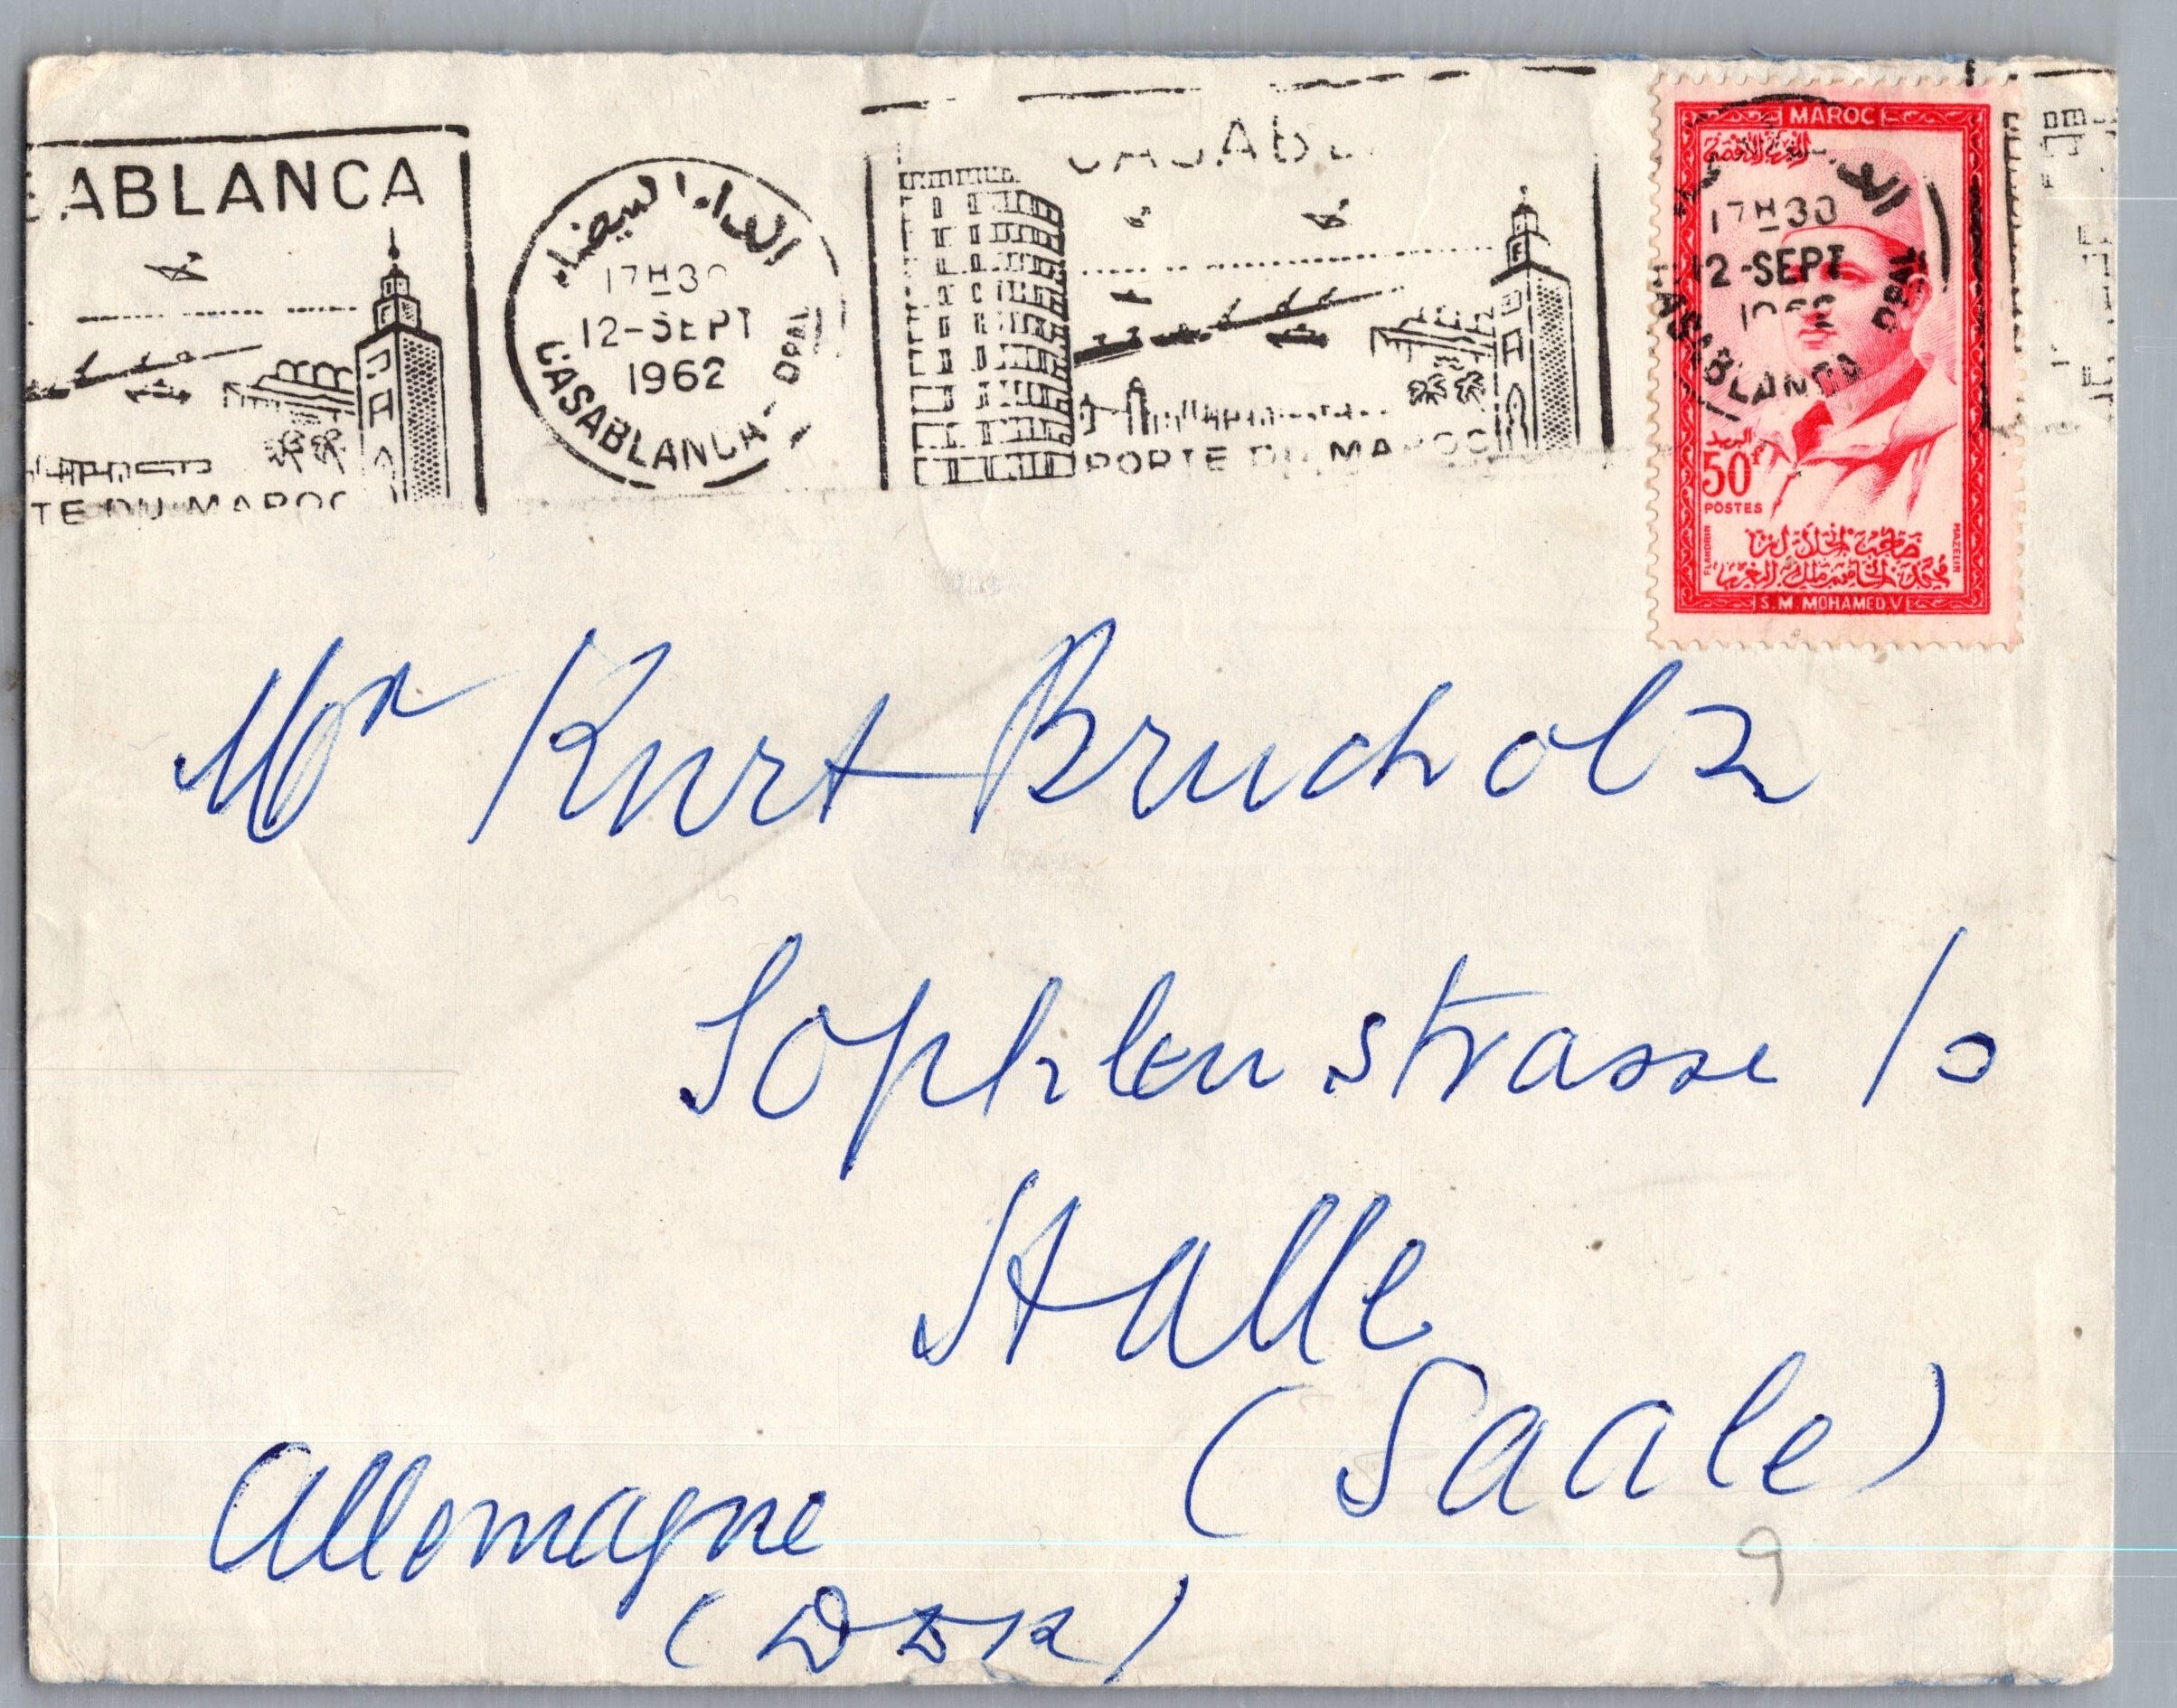 ABLANCA
TE DU MAROC
الدار البيضاء
17H30
12-SEPT
1962
CASABLANCA - DPAL
CASABL
PORTE DU MAROC
MAROC
المملكة المغربية
17H30
12-SEPT
1962
CASABLANCA DPAL
البريد
50F
POSTES
FLANDRIN
MAZELIN
صاحب الجلالة
محمد الخامس ملك المغرب
S. M. MOHAMED. V
Mr Kurt Bruchholz
Sophienstrasse 10
Halle
(Saale)
Allemagne
(DDR)
9